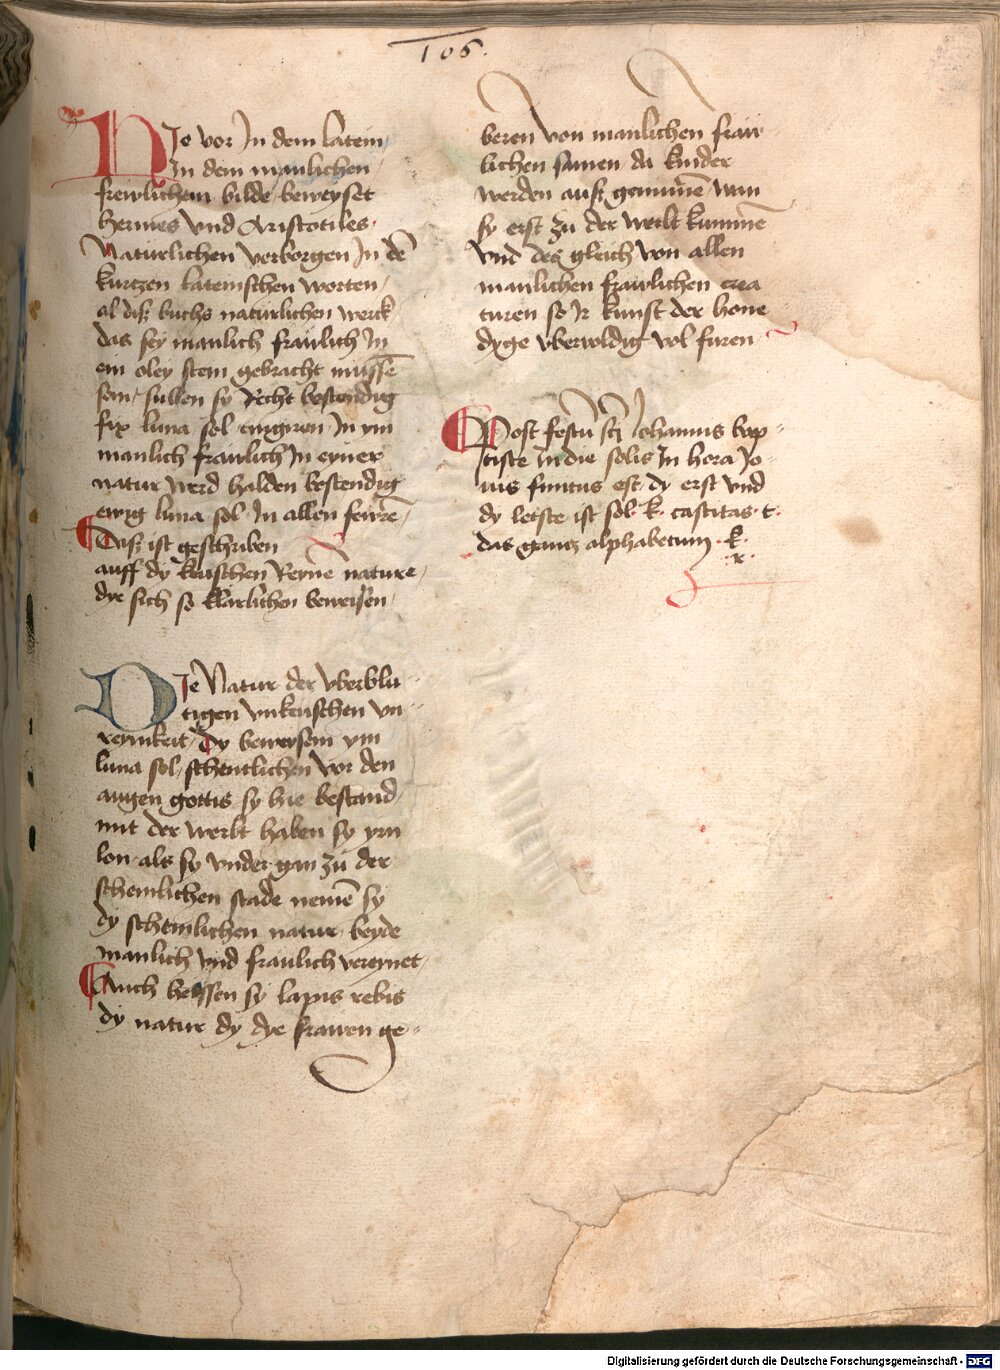 106.
Hie vor In dem latein
In dem manlichen
freiwlichem bilde beweyset
hermes vnd Aristotiles
Naturlichen verborgen In dē
kurtzen lateinschen worten
al diß buchs naturlichen werck
das sey manlich frawlich In
ein oley stein gebracht mussē
sein sullen sy Recht bestendig
fix luna sol In ym
manlich frawlich In eyner
natur werd halden bestendig
ewig luna sol In allen feurē
Daß ist geschriben
auff dy keuschen Reynē nature
dye sich so klarlichen beweisen
Die Natur der vberblu
tigen vnkeuschen vn
reynikeit Dy beweysem ym
luna sol schentlichen vor den
augen gottis sy hie bestand
mit der werlt haben sy yrn
lon als sy vnder gan zu der
schemlichen stade nemē sy
dy schemlichen natur beyde
manlich vnd fraulich vereynet
Auch heyssen sy lapis rebis
dy natur dy dye frawen ge
beren von manlichen fraw
lichen samen da kinder
werden auß genumē wan
sy erst zu der werlt kummē
vnd des gleich von allen
manlichen frawlichen crea
turen so Ir kunst der hone
dyge vberwldig vol furen
Post festū scī Iohannis bap
tiste In die solis In hora Jo
uis finitus est dy erst vnd
dy letste ist sol k. castitas t.
das gantz alphabetum k.
r.
Digitalisierung gefördert durch die Deutsche Forschungsgemeinschaft - DFG